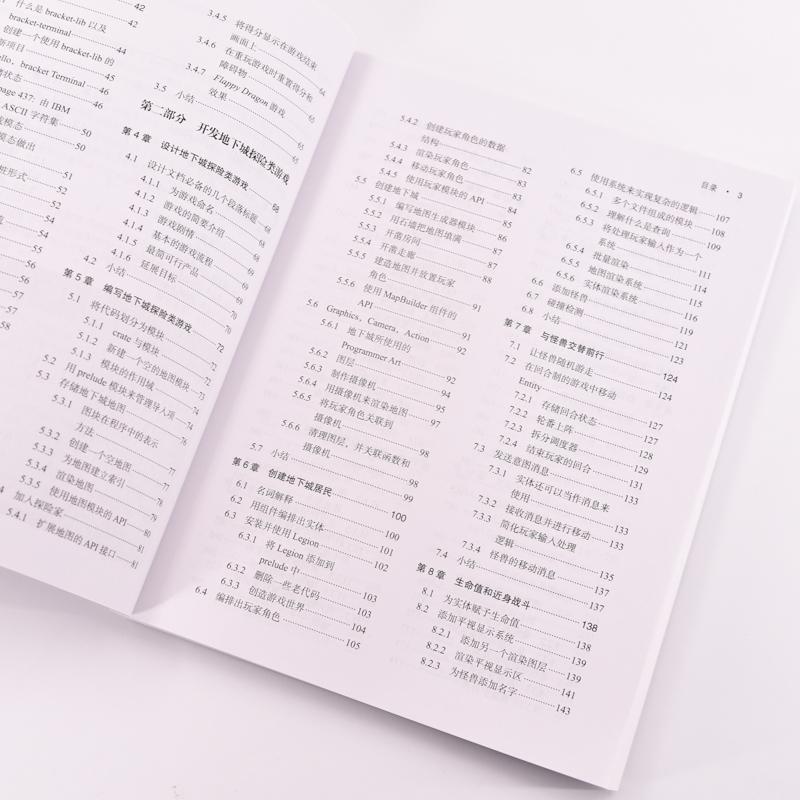 什么是 bracket-lib 以及
bracket-terminal
42
42
创建一个使用 bracket-lib 的
新项目
44
45
bracket Terminal
46
46
page 437: 由 IBM
ASCII 字符集
50
50
模态做出
51
52
52
54
55
55
56
56
57
58
3.4.5 将得分显示在游戏结束
画面上
3.4.6 在重玩游戏时重置得分和
障碍物
64
3.4.7 Flappy Dragon 游戏
效果
65
3.5 小结
65
第二部分 开发地下城探险类游戏
第4章 设计地下城探险类游戏 68
4.1 设计文档必备的几个段落标题 68
4.1.1 为游戏命名 68
4.1.2 游戏的简要介绍 68
4.1.3 游戏剧情 69
4.1.4 基本的游戏流程 69
4.1.5 最简可行产品 69
4.1.6 延展目标 70
4.2 小结 70
第5章 编写地下城探险类游戏 72
5.1 将代码划分为模块 72
5.1.1 crate 与模块 72
5.1.2 新建一个空的地图模块 73
5.1.3 模块的作用域 74
5.2 用 prelude 模块来管理导入项 74
5.3 存储地下城地图 76
5.3.1 图块在程序中的表示
方法 77
5.3.2 创建一个空地图 77
5.3.3 为地图建立索引 78
5.3.4 渲染地图 79
5.3.5 使用地图模块的 API 80
加入探险家 81
5.4.1 扩展地图的 API 接口 81
5.4.2 创建玩家角色的数据
结构 82
5.4.3 渲染玩家角色 83
5.4.4 移动玩家角色 83
5.4.5 使用玩家模块的 API 84
5.5 创建地下城 85
5.5.1 编写地图生成器模块 86
5.5.2 用石墙把地图填满 87
5.5.3 开凿房间 87
5.5.4 开凿走廊 88
5.5.5 建造地图并放置玩家
角色 91
5.5.6 使用 MapBuilder 组件的
API 91
5.6 Graphics, Camera, Action 92
5.6.1 地下城所使用的
Programmer Art 92
5.6.2 图层 94
5.6.3 制作摄像机 94
5.6.4 用摄像机来渲染地图 95
5.6.5 将玩家角色关联到
摄像机 97
5.6.6 清理图层，并关联函数和
摄像机 98
5.7 小结 99
第6章 创建地下城居民 100
6.1 名词解释 100
6.2 用组件编排出实体 101
6.3 安装并使用 Legion 102
6.3.1 将 Legion 添加到
prelude 中 103
6.3.2 删除一些老代码 103
6.3.3 创造游戏世界 104
6.4 编排出玩家角色 105
目录 • 3
6.5 使用系统来实现复杂的逻辑 107
6.5.1 多个文件组成的模块 108
6.5.2 理解什么是查询 109
6.5.3 将处理玩家输入作为一个
系统 111
6.5.4 批量渲染 114
6.5.5 地图渲染系统 115
6.5.6 实体渲染系统 116
6.6 添加怪兽 119
6.7 碰撞检测 121
6.8 小结 123
第7章 与怪兽交替前行 124
7.1 让怪兽随机游走 124
7.2 在回合制的游戏中移动
Entity 127
7.2.1 存储回合状态 127
7.2.2 轮番上阵 128
7.2.3 拆分调度器 129
7.2.4 结束玩家的回合 131
7.3 发送意图消息 133
7.3.1 实体还可以当作消息来
使用 133
7.3.2 接收消息并进行移动 133
7.3.3 简化玩家输入处理
逻辑 135
7.3.4 怪兽的移动消息 137
7.4 小结 137
第8章 生命值和近身战斗 138
8.1 为实体赋予生命值 138
8.2 添加平视显示系统 139
8.2.1 添加另一个渲染图层 139
8.2.2 渲染平视显示区 141
8.2.3 为怪兽添加名字 143